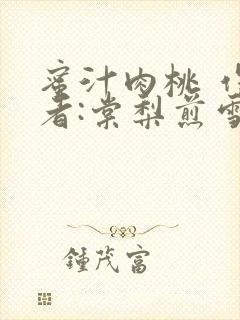 蜜汁肉桃 作
者:棠梨煎雪
鍾茂富